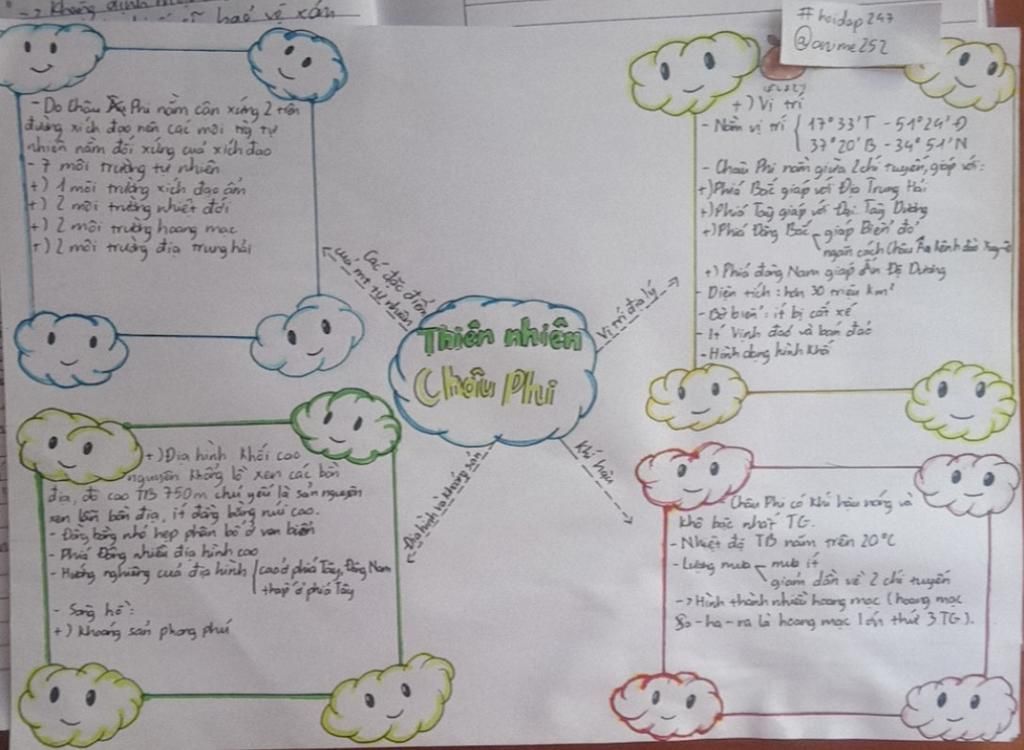 -> Khẳng định
bảo vệ xóm
#hoidap247
@anime252
Thiên nhiên
Châu Phi
Các đặc điểm
của mt tự nhiên
- Do Châu Phi nằm cân xứng 2 trên
đường xích đạo nên các môi trg tự
nhiên nằm đối xứng quá xích đạo
- 7 môi trường tự nhiên
+) 1 môi trường xích đạo ẩm
+) 2 môi trường nhiệt đới
+) 2 môi trường hoang mạc
+) 2 môi trường địa trung hải
Vị trí địa lý
+) Vị trí
- Nằm vị trí { 17°33'T - 51°24'Đ
37°20'B - 34°51'N
- Châu Phi nằm giữa 2 chí tuyến, giáp với:
+) Phiá Bắc giáp với Địa Trung Hải
+) Phiá Tây giáp với Đại Tây Dương
+) Phiá Đông Bắc giáp Biển đỏ
ngăn cách Châu Á kênh đào
+) Phiá đông Nam giáp Ấn Độ Dương
- Diện tích: hơn 30 triệu km²
- Bờ biển: ít bị cắt xẻ
- Ít Vịnh đaỏ và bán đảo
- Hình dạng hình khối
Địa hình và khoáng sản
+) Địa hình khối cao
nguyên khổng lồ xen các bồn
địa, độ cao TB 750m chủ yếu là sơn nguyên
xen lẫn bồn địa, ít đồng bằng núi cao.
- Đồng bằng nhỏ hẹp phân bố ở ven biển
- Phiá Đông nhiều địa hình cao
- Hướng nghiêng cuả địa hình cao ở phiá Tây, Đông Nam
thấp ở phiá Tây
- Sông hồ:
+) Khoáng sản phong phú
Khí hậu
Châu Phi có khí hậu nóng và
khô bậc nhất TG.
- Nhiệt độ TB năm trên 20°C
- Lượng mưa mưa ít
giảm dần về 2 chí tuyến
-> Hình thành nhiều hoang mạc (hoang mạc
Xa-ha-ra là hoang mạc lớn thứ 3 TG).